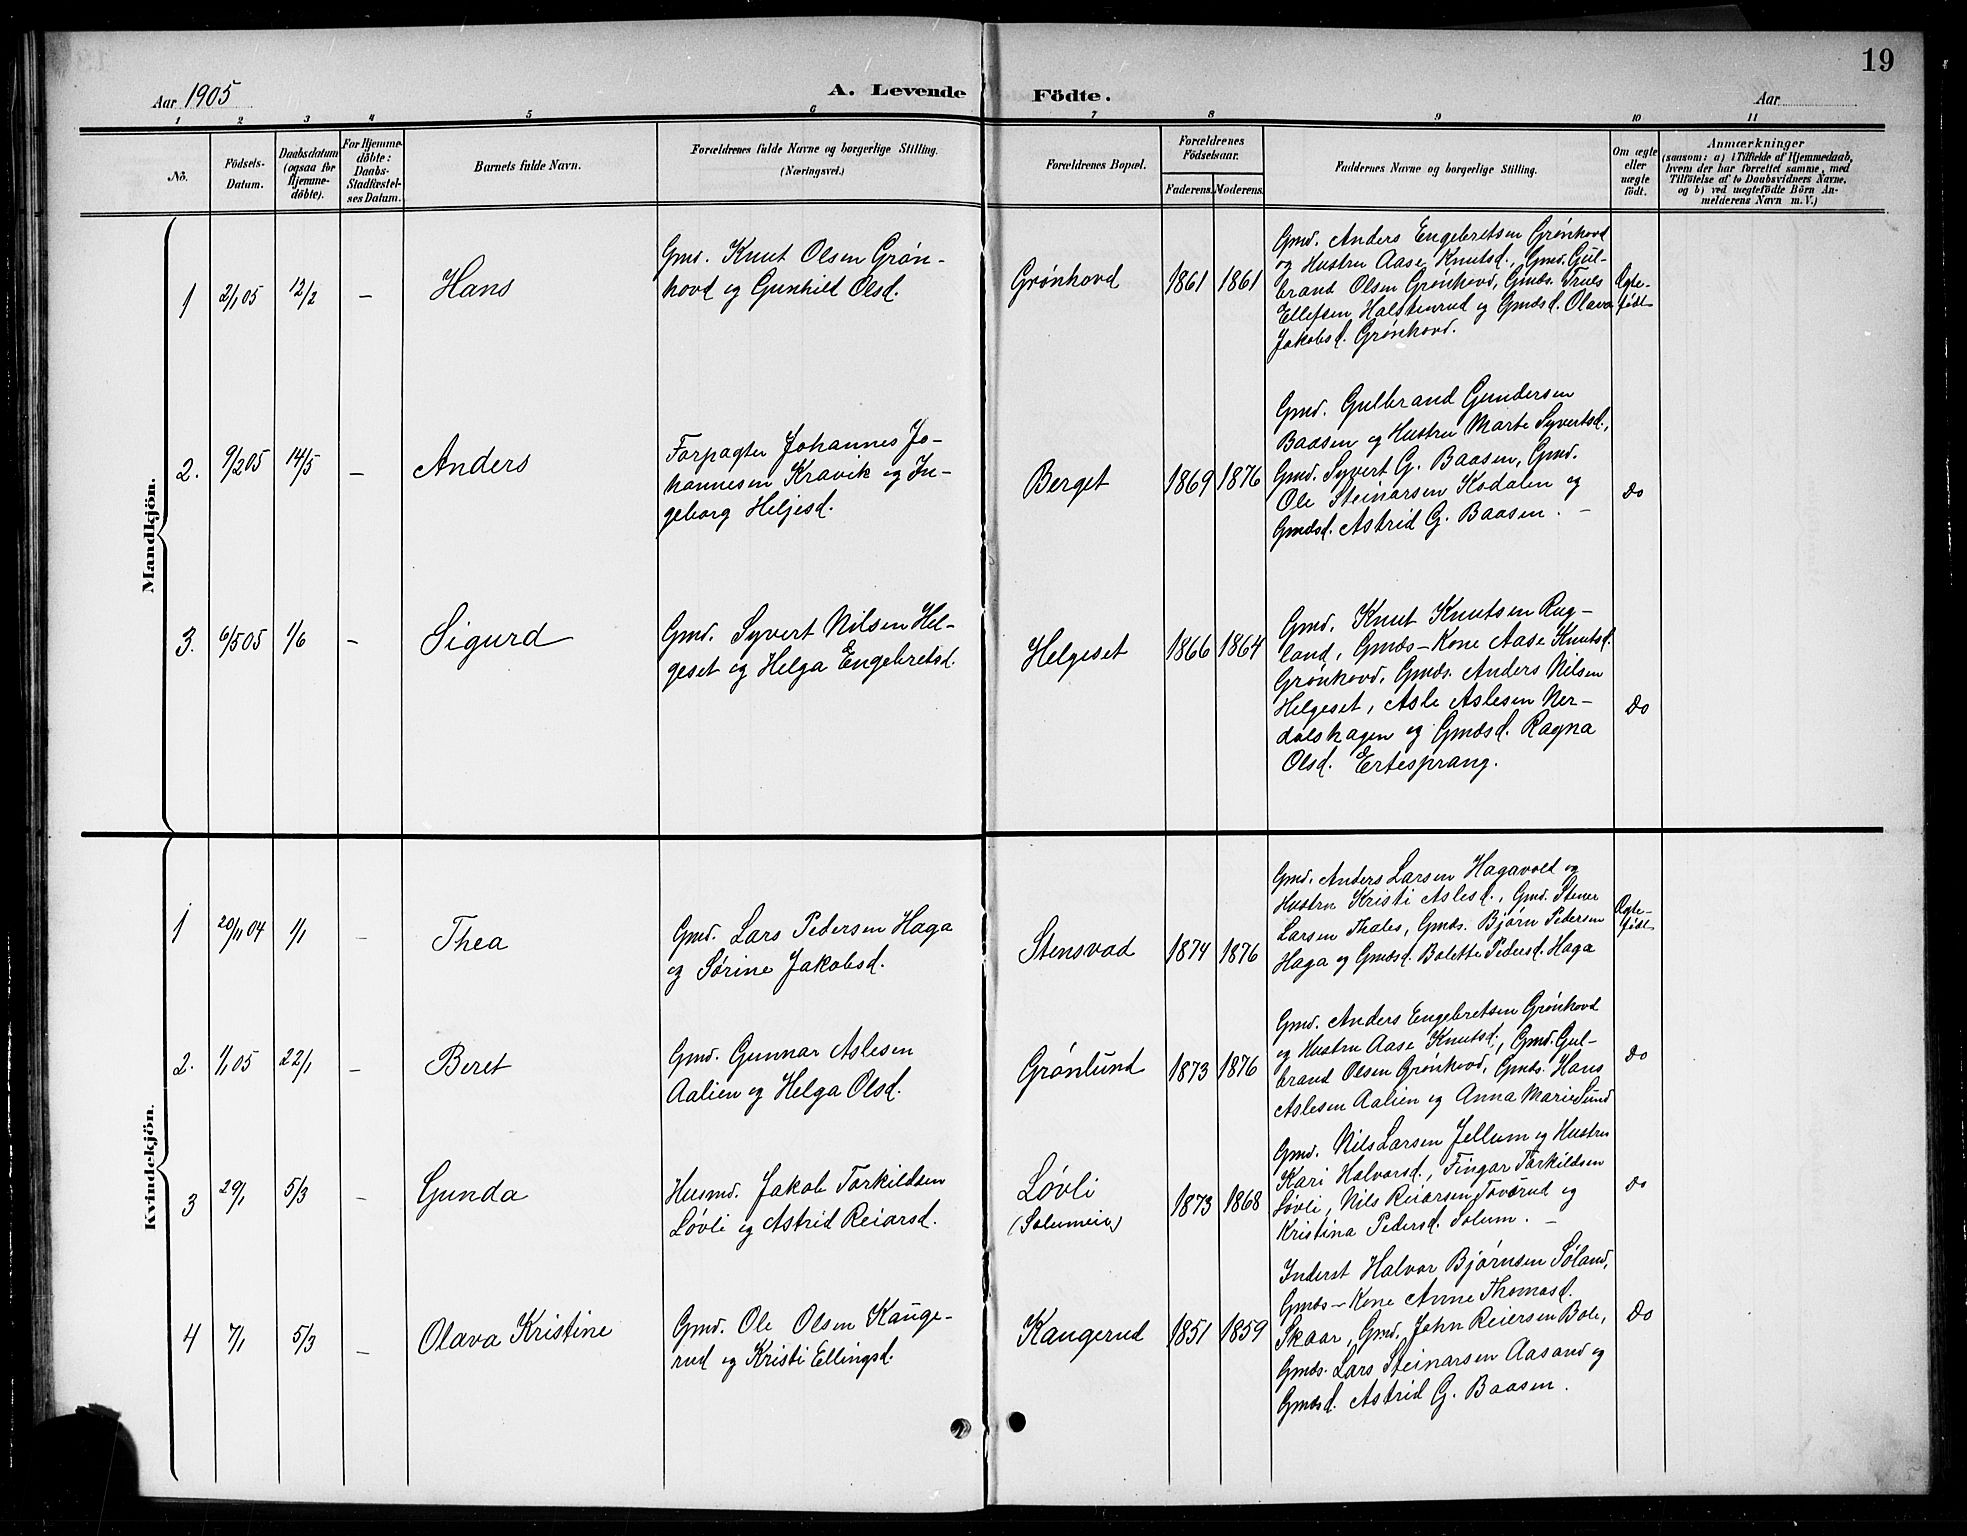 19
Aar 1905
A. Levende
Födte.
Aar
1 2 3 4 5 6 7 8 9 10 11
No.
Födsels-
Datum.
Daabsdatum
(ogsaa for
Hjemme-
döbte).
For Hjemme-
döbte:
Daabs-
Stadfæstel-
ses Datum.
Barnets fulde Navn.
Forældrenes fulde Navne og borgerlige Stilling.
(Næringsvei.)
Forældrenes Bopæl.
Forældrenes
Födselsaar.
Faderens. Moderens.
Faddernes Navne og borgerlige Stilling.
Om ægte
eller
uægte
födt.
Anmærkninger
(saasom: a) i Tilfælde af Hjemmedaab,
hvem der har forrettet samme, med
Tilföielse af to Daabsvidners Navne,
og b) ved uægtefödte Börn An-
melderens Navn m. V.)
Mandkjön.
1
2/1 05
12/2
—
Hans
Gmd. Knut Olsen Grøn-
hovd og Gunhild Olsd.
Grønhovd
1861
1861
Gmd. Anders Engebretsen Grønhovd
og Hustru Aase Knutsd., Gmd. Gul-
brand Olsen Grønhovd, Gmds. Truls
Ellefsen Halstenrud og Gmdsd. Olava
Jakobsd. Grønhovd.
Ægte-
født
2.
9/2 05
14/5
—
Anders
Forpagter Johannes Jo-
hannesen Kravik og In-
geborg Heljesd.
Berget
1869
1876
Gmd. Gulbrand Gundersen
Baasen og Hustru Marte Syvertsd.,
Gmd. Syvert G. Baasen, Gmd.
Ole Steinarsen Kodalen og
Gmdsd. Astrid G. Baasen. —
do
3.
6/5 05
1/6
—
Sigurd
Gmd. Syvert Nilsen Hel-
geset og Helga Engebretsd.
Helgeset
1866
1864
Gmd. Knut Knutsen Rug-
land, Gmds-Kone Aase Knutsd.
Grønhovd, Gmds. Anders Nilsen
Helgeset, Asle Aslesen Ner-
dalshagen og Gmdsd. Ragna
Olsd. Ertesprang.
do
Kvindekjön.
1
20/11 04
1/1
—
Thea
Gmd. Lars Pedersen Haga
og Sørine Jakobsd.
Stensvad
1874
1876
Gmd. Anders Larsen Hagavold og
Hustru Kristi Aslesd., Gmd. Stener
Larsen Thales, Gmds. Bjørn Pedersen
Haga og Gmdsd. Bolette Pedersd. Haga
Ægte-
født
2.
1/1 05
22/1
—
Beret
Gmd. Gunnar Aslesen
Aalien og Helga Olsd.
Grønlund
1873
1876
Gmd. Anders Engebretsen Grønhovd
og Hustru Aase Knutsd., Gmd. Gul-
brand Olsen Grønhovd, Gmds. Hans
Aslesen Aalien og Anna Marie Lund
do
3
29/1
5/3
—
Gunda
Husmd. Jakob Torkildsen
Løvli og Astrid Reiarsd.
Løvli
(Solumeie)
1873
1868
Gmd. Nils Larsen Jellum og Hustru
Kari Halvorsd., Fingar Torkildsen
Løvli, Nils Reiarsen Toverud og
Kristina Pedersd. Solum. —
do
4
7/1
5/3
—
Olava Kristine
Gmd. Ole Olsen Kauge-
rud og Kristi Ellingsd.
Kaugerud
1851
1859
Inderst Halvor Bjørnsen Søland,
Gmds-Kone Anne Thomasd.
Skaar, Gmd. John Reiersen Bole,
Gmds. Lars Steinarsen Aasand og
Gmdsd. Astrid G. Baasen.
do